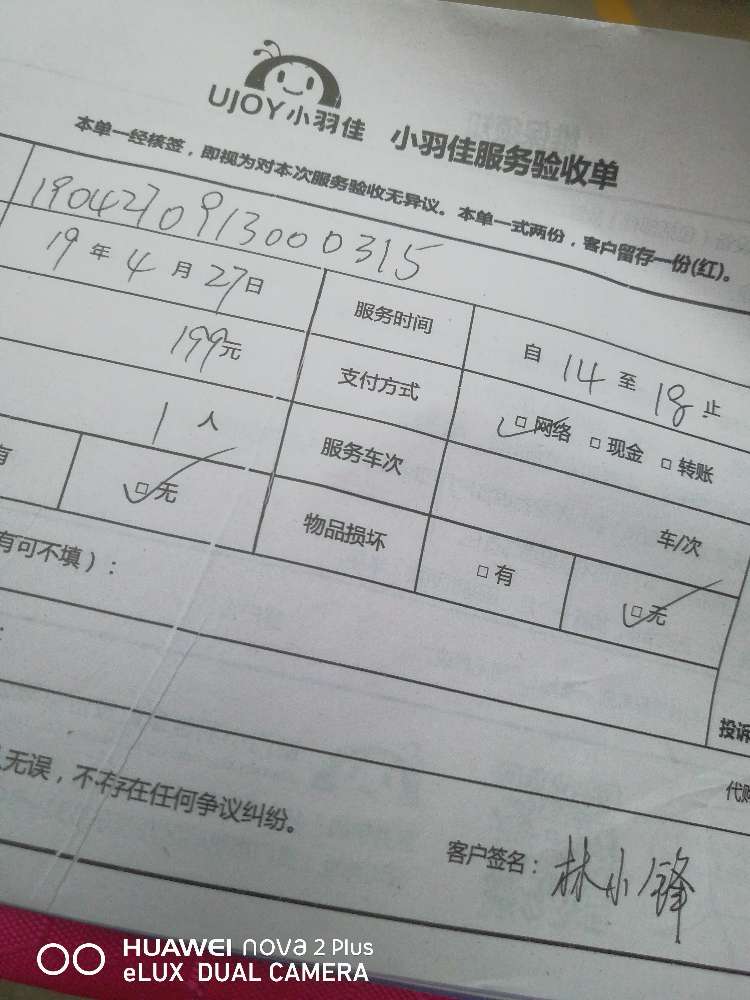 UJOY小羽佳 小羽佳服务验收单
本单一经核签，即视为对本次服务验收无异议。本单一式两份，客户留存一份(红)。
190427091300 0315
19 年 4 月 27 日 服务时间 自 14 至 18 止
199元 支付方式 □ 网络 □ 现金 □ 转账
1 人 服务车次 车/次
有 □ 无 物品损坏 □ 有 □ 无
有可不填）：
投诉
代购
无误，不存在任何争议纠纷。
客户签名：林小锋
HUAWEI nova 2 Plus
eLUX DUAL CAMERA